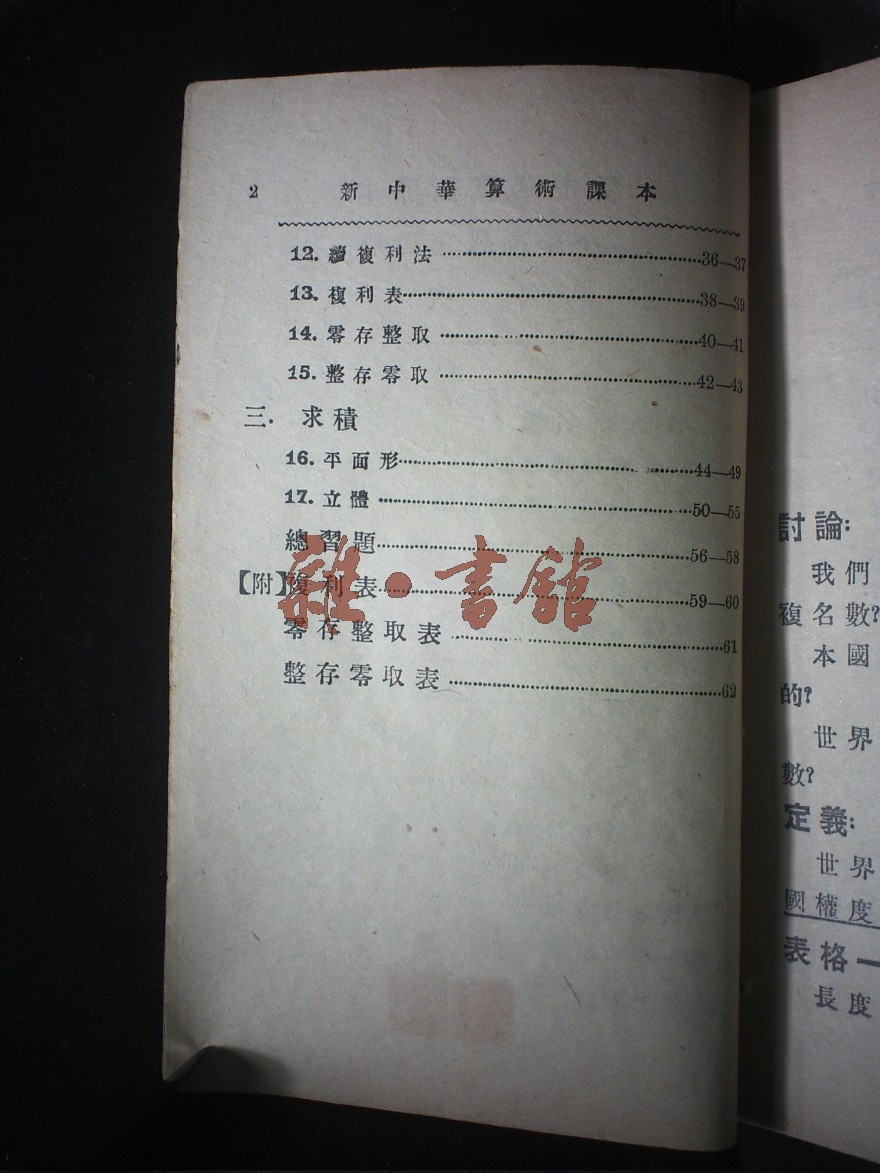 2 新中華算術課本
12. 續複利法 36—37
13. 複利表 38—39
14. 零存整取 40—41
15. 整存零取 42—43
三. 求積
16. 平面形 44—49
17. 立體 50—55
總習題 56—58
【附】複利表 59—60
零存整取表 61
整存零取表 62
雜·書館
討論:
我們
複名數?
本國
的?
世界
數?
定義:
世界
國權度
表格一
長度